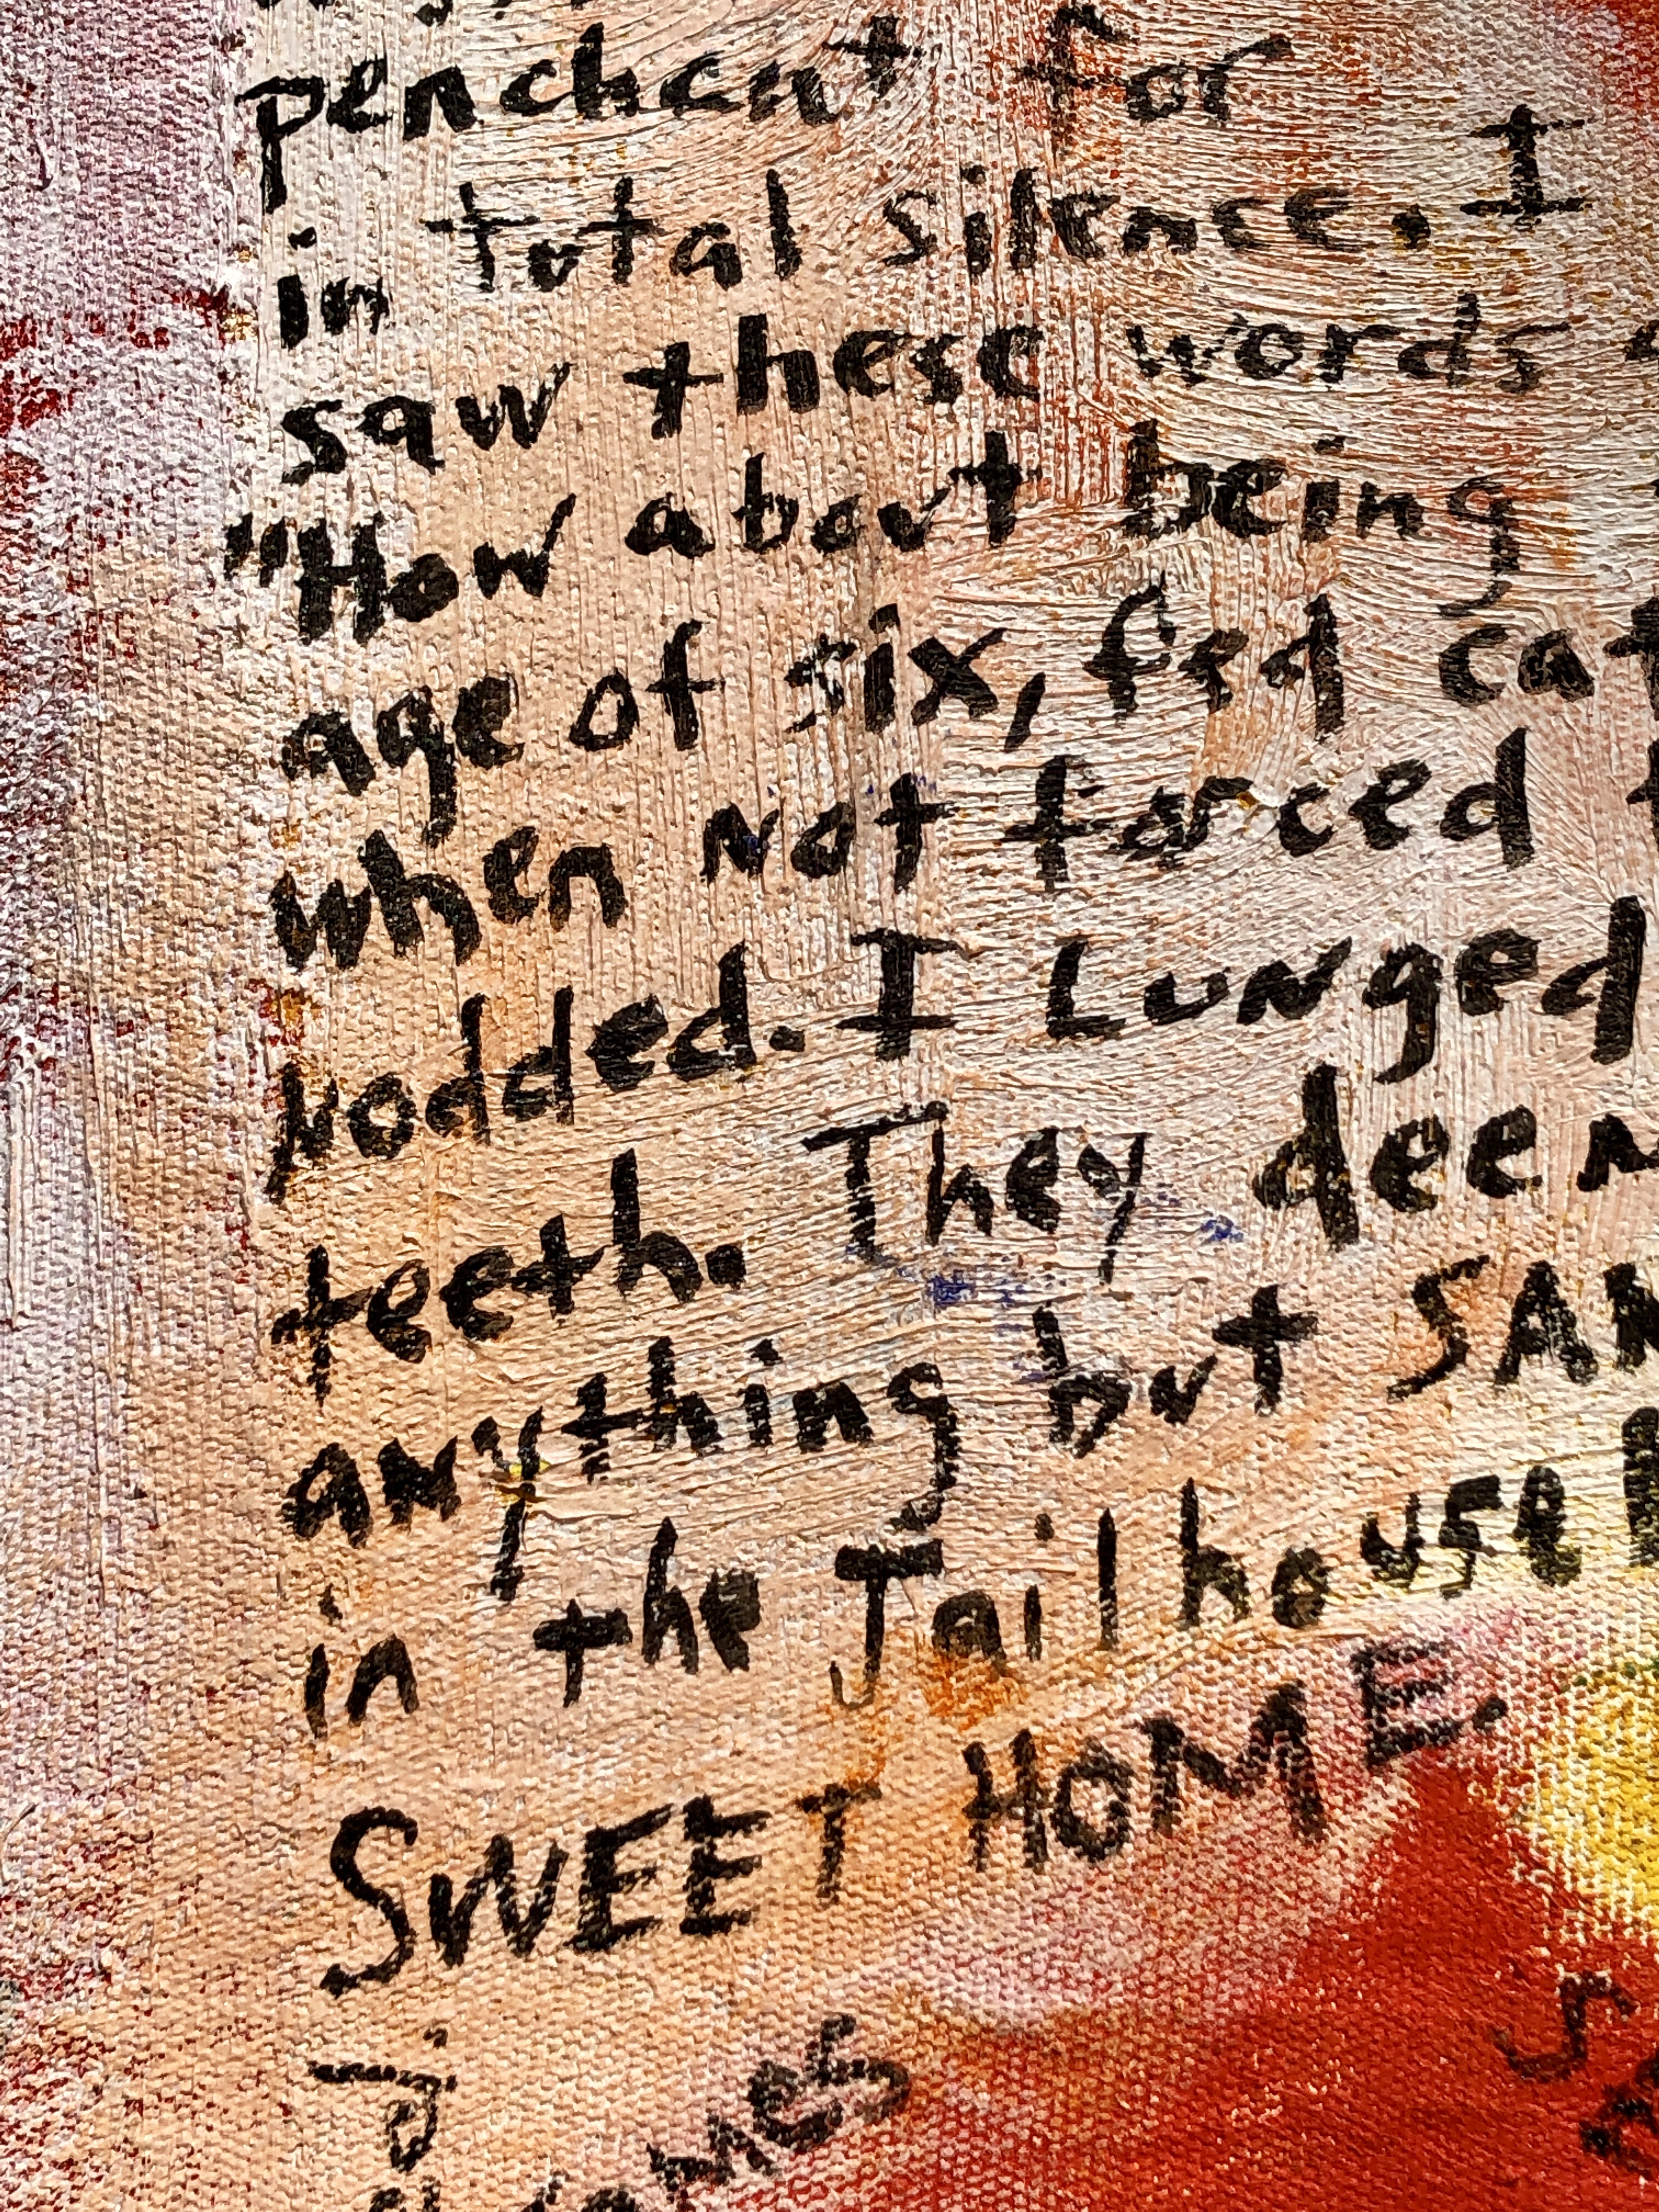 penchant for
in total silence. I
saw these words
"How about being
age of six, fed
when not forced
nodded. I Lunged
teeth. They
anything but
in the Jailhouse
SWEET HOME.